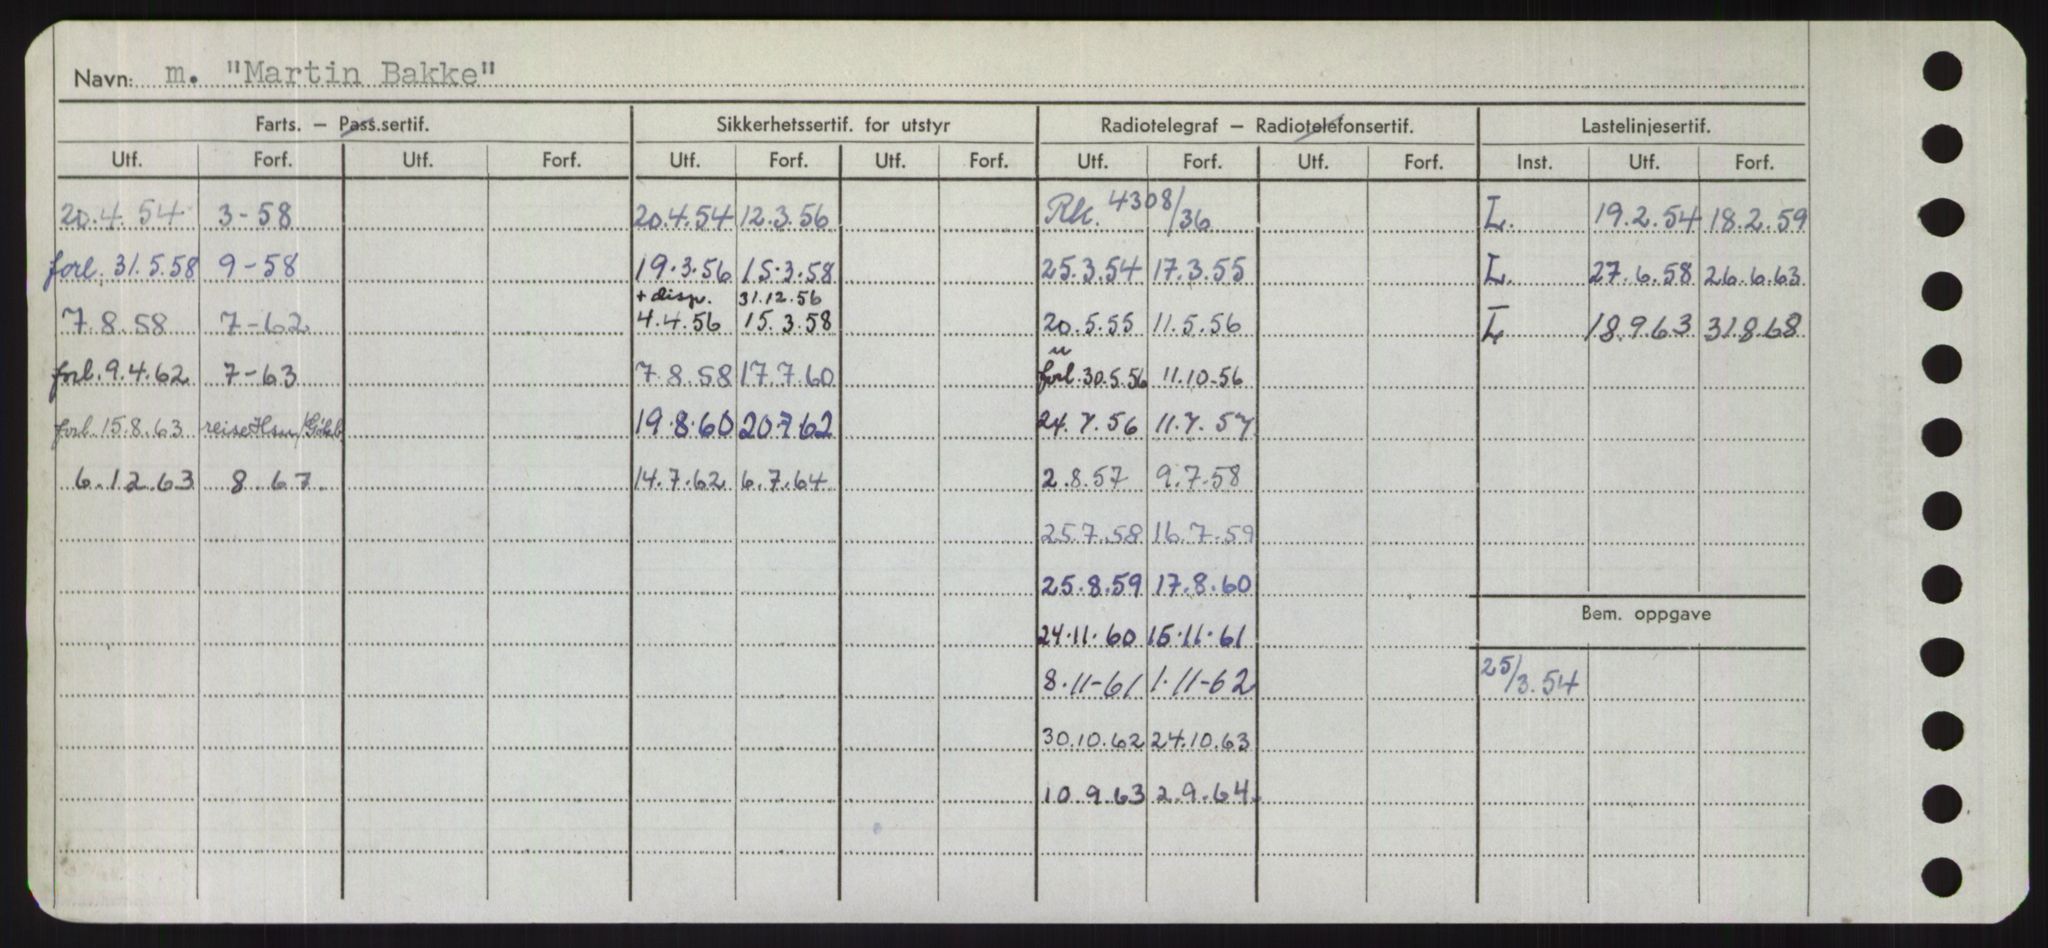 Navn: m. "Martin Bakke"
Farts. – Pass.sertif. Sikkerhetssertif. for utstyr Radiotelegraf – Radiotelefonsertif. Lastelinjesertif.
Utf. Forf. Utf. Forf. Utf. Forf. Utf. Forf. Utf. Forf. Utf. Forf. Inst. Utf. Forf.
20.4.54 3-58 20.4.54 12.3.56 Rk. 4308/36 L. 19.2.54 18.2.59
forl. 31.5.58 9-58 19.3.56 15.3.58 25.3.54 17.3.55 L. 27.6.58 26.6.63
+ disp. 31.12.56
7.8.58 7-62 4.4.56 15.3.58 20.5.55 11.5.56 L 18.9.63 31.8.68
u
forl. 9.4.62 7-63 7.8.58 17.7.60 forl. 30.5.56 11.10-56
forl. 15.8.63 reise Hsu/Gøteb 19.8.60 20.7.62 24.7.56 11.7.57
6.12.63 8.67 14.7.62 6.7.64 2.8.57 9.7.58
25.7.58 16.7.59
25.8.59 17.8.60
Bem. oppgave
24.11.60 15.11.61
8.11-61 1.11-62 25/3.54
30.10.62 24.10.63
10.9.63 2.9.64.